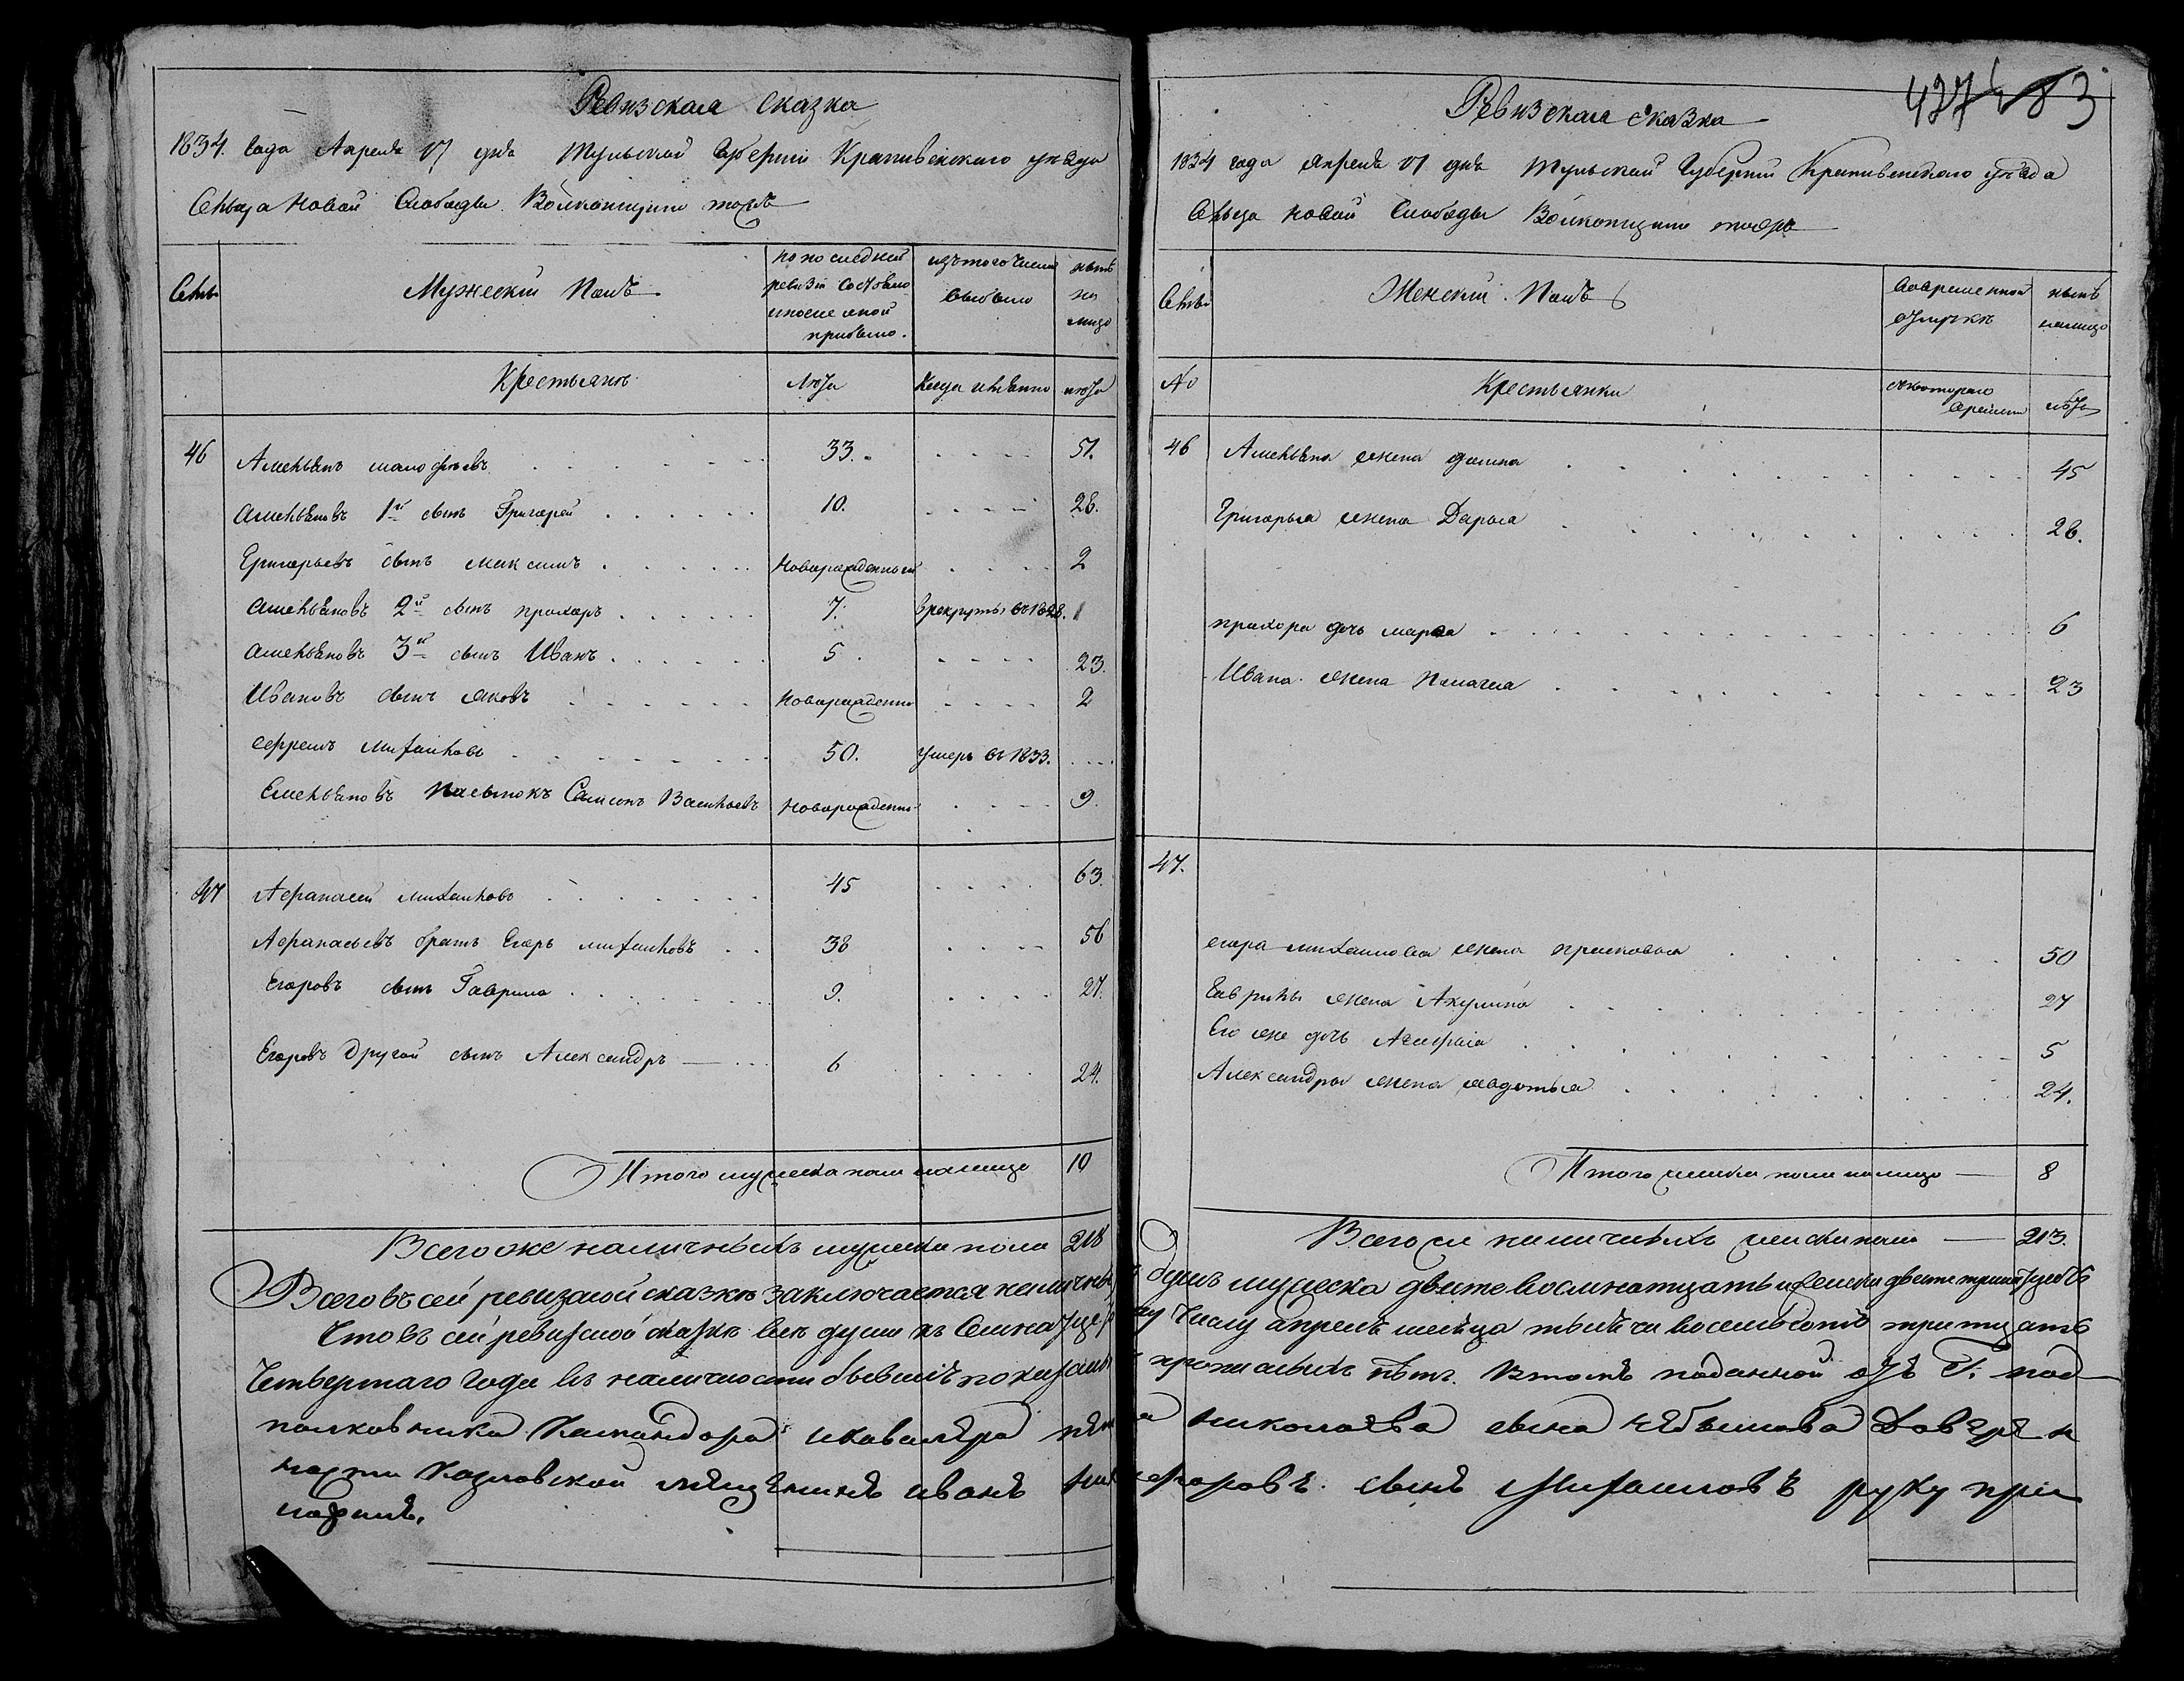 Ревизская сказка
1834. года Апреля 17 дня Тульской Губернии Крапивенского уезда
Сельца Новой Слободы Волконщино тожъ
Семьи
Мужеский Полъ
по последней ревизіи состояло и после оной прибыло.
изъ того числа выбыло
ныне на лицо
Крестьяне
Лета
Когда именно
лета
46 Амельянъ 33. 51.
Амельяновъ 1й сынъ Григорей 10. 28.
Григорьевъ сынъ Максимъ Новорожденный 2
Амельяновъ 2й сынъ прохоръ 7. в рекруты въ 1828.
Амельяновъ 3й сынъ Иванъ 5. 23.
Ивановъ сынъ яковъ Новорожденно 2
Ефремъ Михайловъ 50. умеръ въ 1833.
Емельяновъ Пасынокъ Самсонъ Васильевъ новорожденно 9.
47 Афанасей михайловъ 45 63.
Афанасьевъ братъ Егоръ михайловъ 38 56
Егоровъ сынъ Гаврила 9. 27.
Егоровъ другой сынъ Александръ 6 24.
Итого мужеска пола налицо 10
Всего же наличныхъ мужеска пола 218
Ревизская сказка
427 83
1834 года Апреля 17 дня Тульской Губернии Крапивенского уезда
Сельца новой Слободы Волконщино тожъ
Семьи
Женский Полъ
Во временной отлучке
ныне налицо
No
Крестьянки
съ котораго времени
лета
46 Амельяна жена 45
Григорья жена Дарья 26.
прохора дочь марфа 6
Ивана жена Пелагея 23
47.
егора михайлова жена прасковья 50
Гаврилы жена Акулина 27
Его же дочь Агафья 5
Александры жена авдотья 24.
Итого женска пола налицо 8
Всего же наличныхъ женска пола 213.
Всего въ сей ревизской сказке заключается наличныхъ душъ мужеска двести восмнатцать и женска двести тринатцеть
Что въ сей ревизской сказке все души къ семнатцетому числу апреля месяца тысеча восемьсотъ тритцать
Четвертаго года въ наличности бывшие показаны и прописныхъ нетъ. В томъ поданной отъ Г. под
полковника Командора и кавалера николаева сына Довере н
ности Козловской мещенинъ иванъ сынъ Михаиловъ руку при
ложилъ.